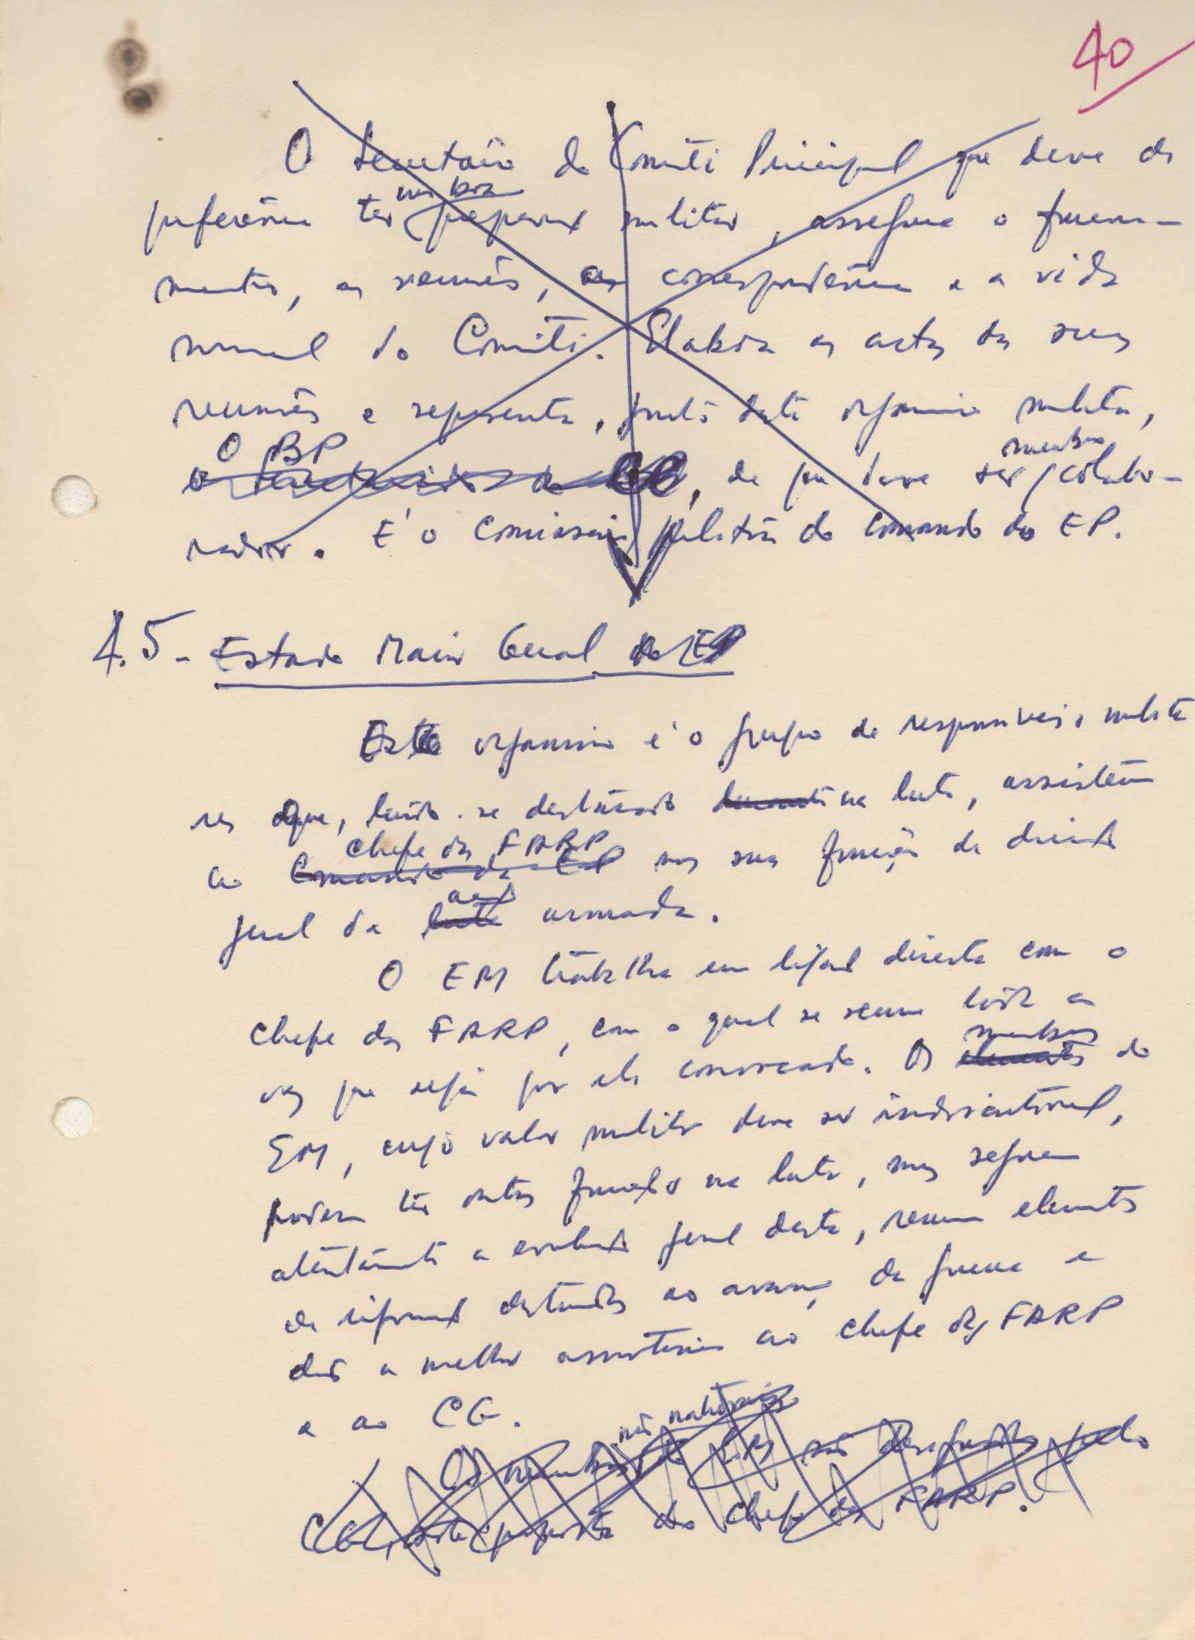 40
O Secretário do Comité Principal que deve de
preferência ter uma boa preparação militar, assegura o funciona-
mento, as reuniões, a correspondência e a vida
normal do Comité. Elabora as actas das suas
reuniões e representa, junto deste organismo militar,
O BP
de que deve ser membro / colabo-
rador. É o Comissário político do Comando do EP.
4.5 - Estado Maior Geral do EP
Este organismo é o grupo de responsáveis milita
res que, tendo-se destacado durante na luta, assistem
chefe das FARP
ao Comando do EP nas suas funções de direcção
acção
geral da luta armada.
O EM trabalha em ligação directa com o
chefe das FARP, com o qual se reune toda a
vez que seja por ele convocado. Os membros elementos do
EM, cujo valor militar deve ser indiscutível,
podem ter outras funções na luta, mas seguem
atentamente a evolução geral desta, reunem elementos
de informação destinados ao avanço da guerra e
dão a melhor assistência ao chefe das FARP
e ao CG.
Os membros do EM são designados pelo
CG, sob proposta do Chefe das FARP.